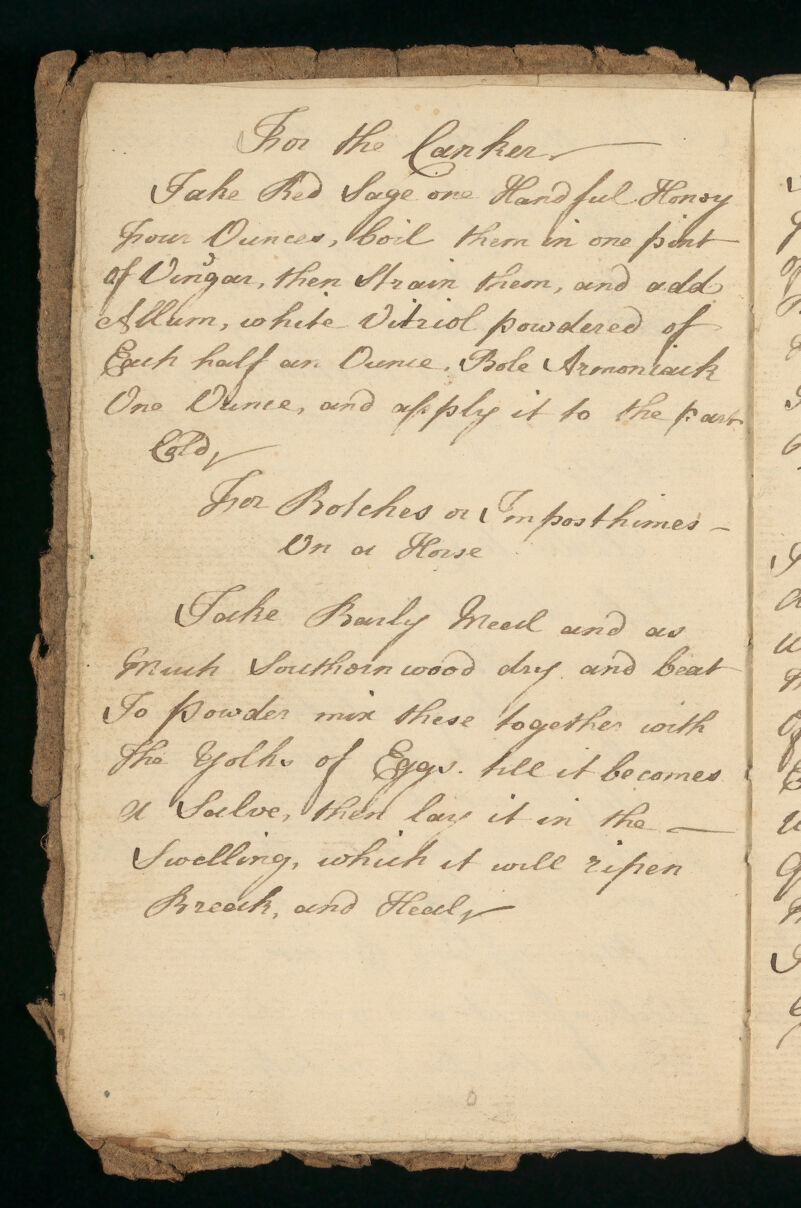 For the Canker
Take Red Sage one Handful Honey
four Ounces, boil them in one pint
of Vingar, then Strain them, and add
Allum, white Vitriol powdered of
Each half an Ounce, Bole Armoniack
One Ounce, and apply it to the part
Cold
For Botches or Imposthimes -
On a Horse
Take Barly Meal and as
Much Southornwood dry and beat
To powder mix these together with
The Yolks of Eggs. till it becomes
A Salve, then lay it in the —
Swelling, which it will ripen
Break, and Heal